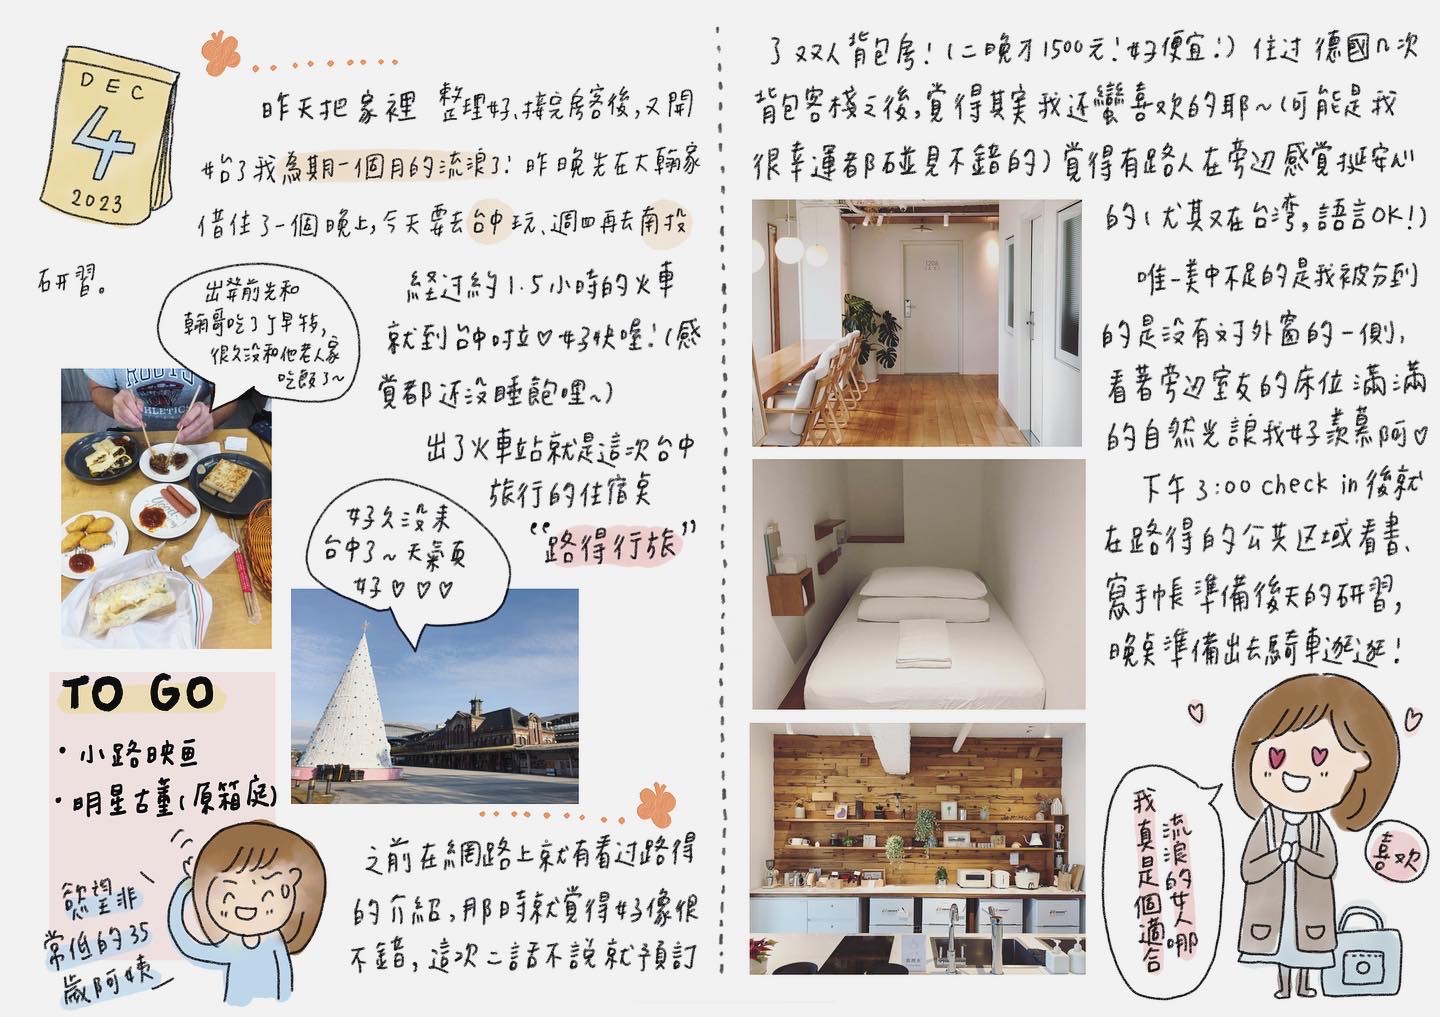 DEC
4
2023
昨天把家裡 整理好、接完房客後,又開
始了我為期一個月的流浪了! 昨晚先在大翰家
借住了一個晚上,今天要去台中玩、週四再去南投
研習。
出發前先和
翰哥吃了個早餐,
很久没和他老人家
吃飯了~
経过約1.5小時的火車
就到台中啦♡好快喔!(感
覚都还没睡飽哩~)
出了火車站就是這次台中
旅行的住宿点
“路得行旅”
好久没来
台中了~天氣真
好♡♡♡
TO GO
・小路映画
・明星古董(原箱庭)
慾望非
常低的35
歲阿姨
之前在網路上就有看过路得
的介紹,那時就覚得好像很
不錯,這次二話不說就預訂
了双人背包房!(二晚才1500元!好便宜!) 住过德國几次
背包客棧之後,覚得其実我还蠻喜欢的耶~(可能是我
很幸運都碰見不錯的)覚得有路人在旁边感覚挺安心
的(尤其又在台湾,語言OK!)
唯一美中不足的是我被分到
的是没有对外窗的一側,
看著旁边室友的床位滿滿
的自然光讓我好羨慕阿♡
下午3:00 check in後就
在路得的公共区域看書、
寫手帳準備後天的研習,
晚点準備出去騎車逛逛!
我真是個適合
流浪的女人哪
喜欢